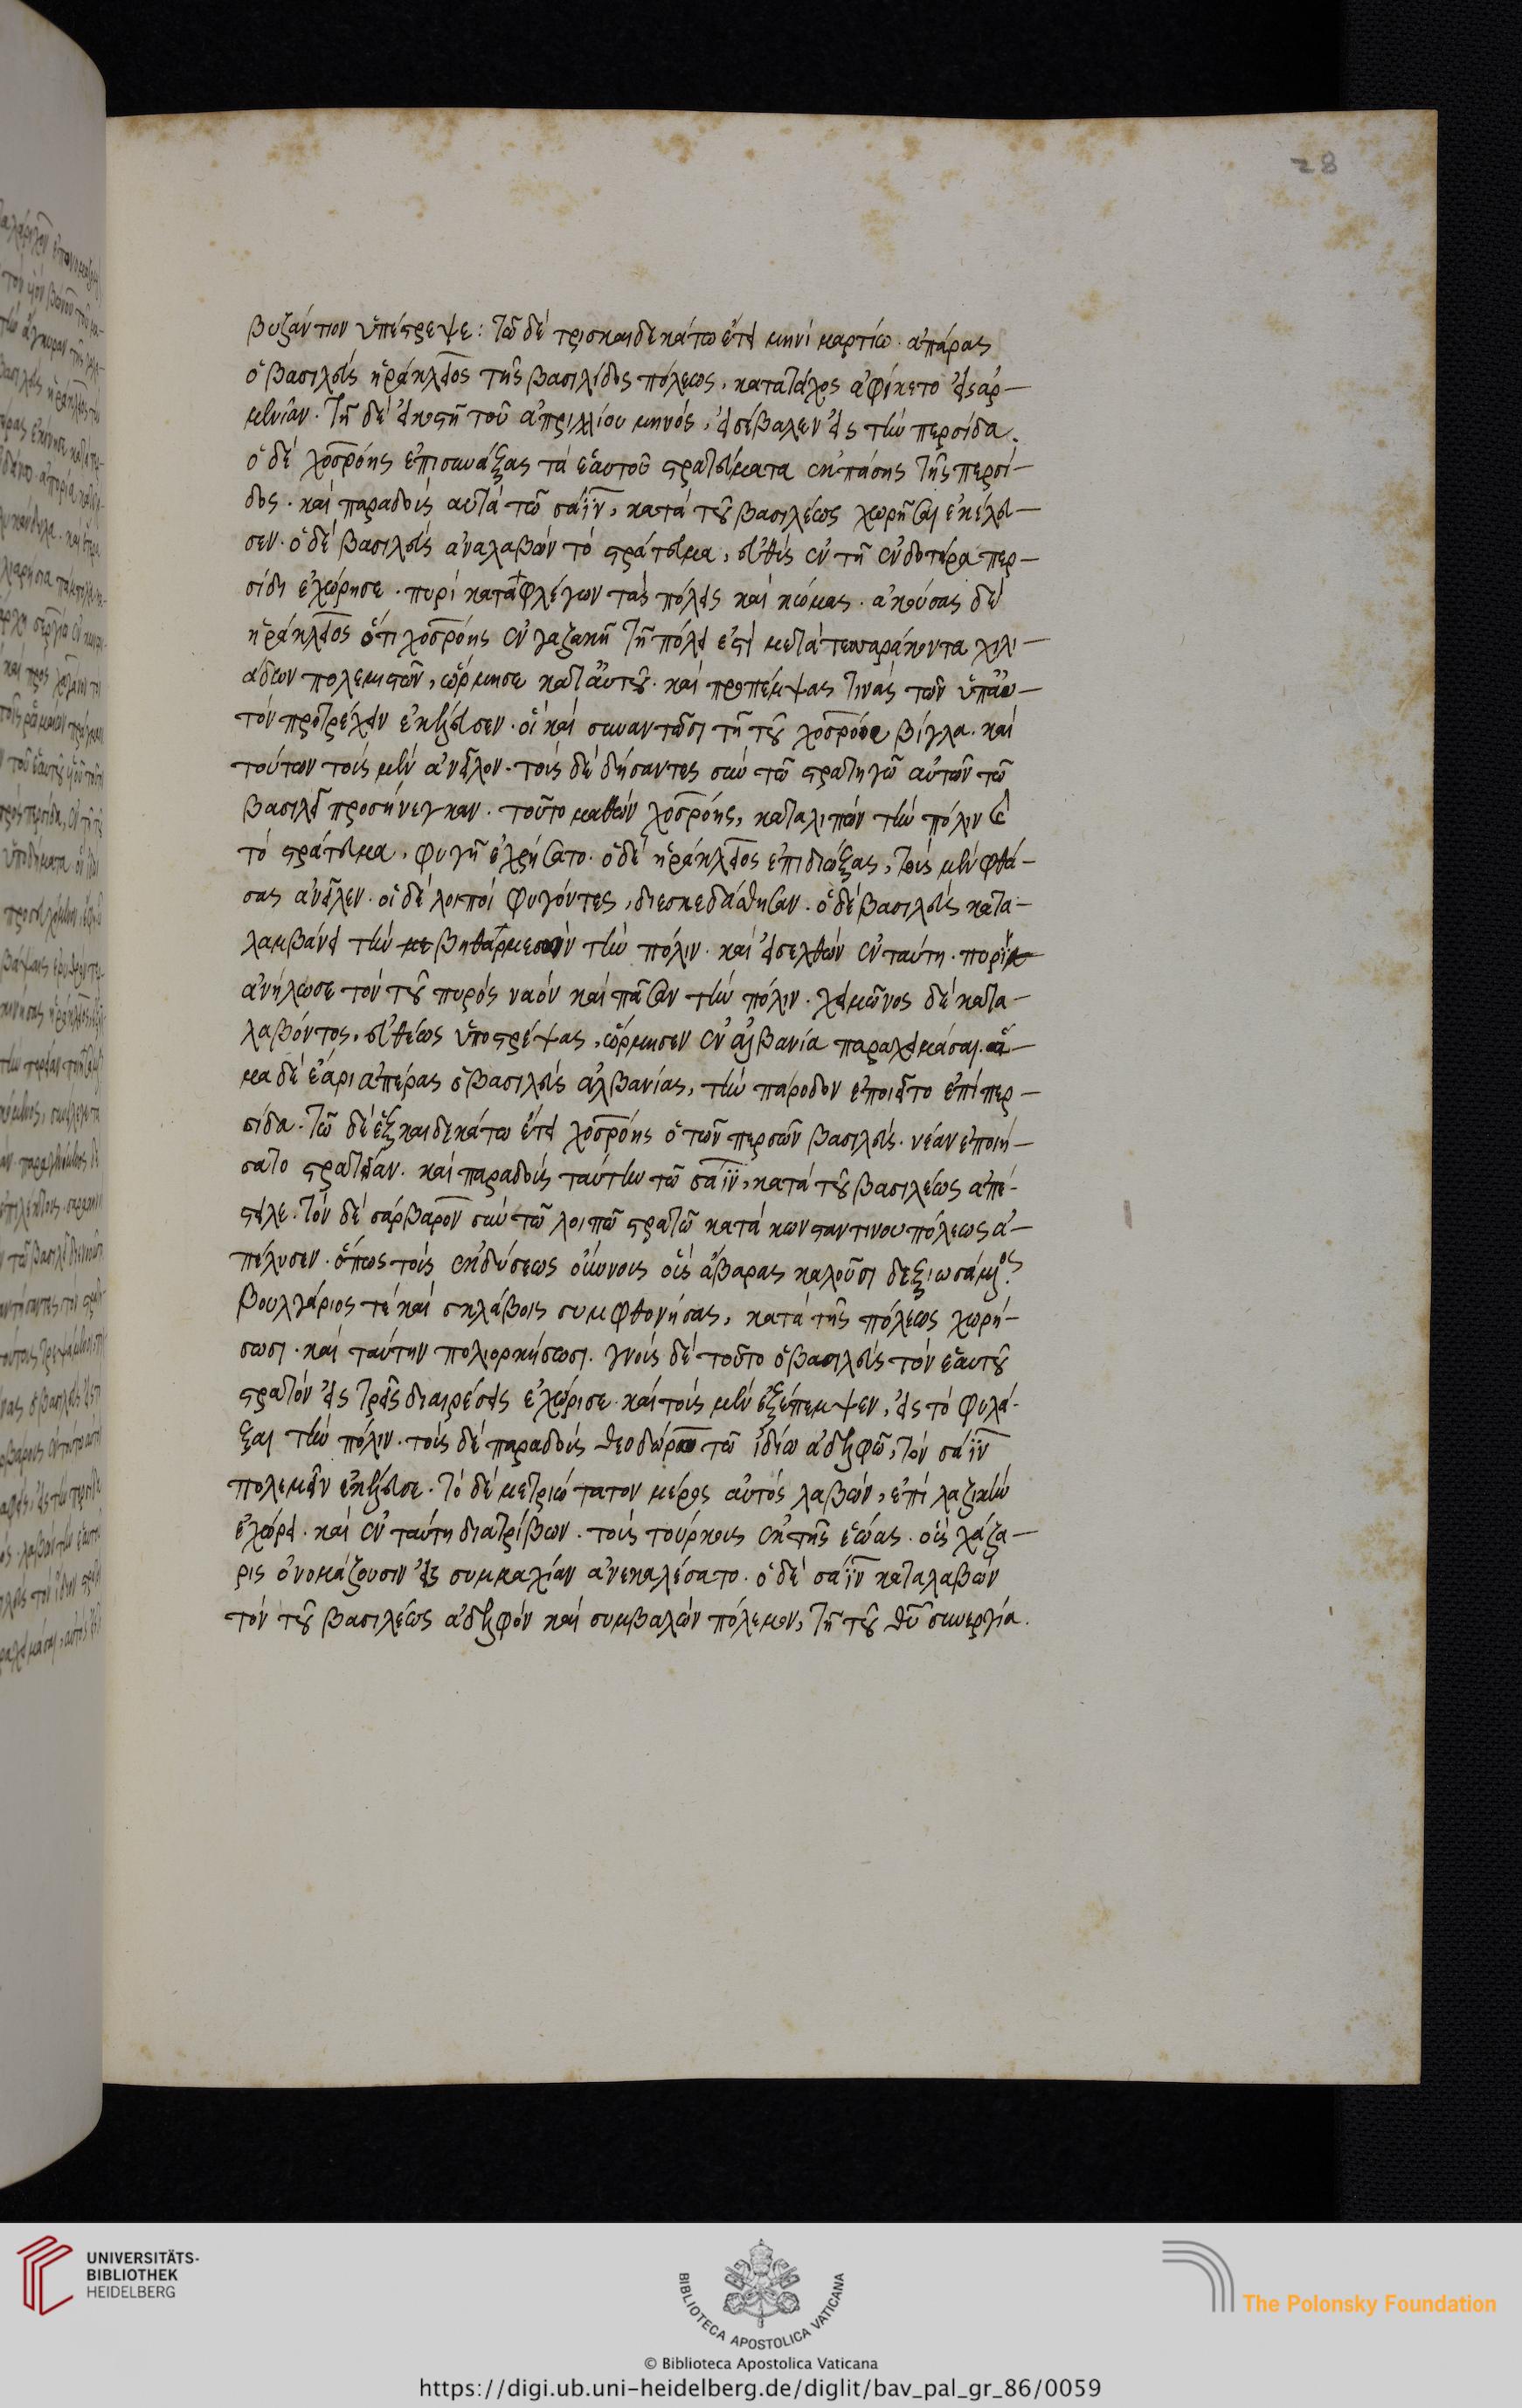 28
βυζάντιον ὑπέστρεψε: τῶ δὲ τρισκαιδεκάτω ἔτει μηνὶ μαρτίω. ἀπάρας
ὁ βασιλεὺς ἡράκλειος τῆς βασιλίδος πόλεως, κατατάχος ἀφίκετο εἰς ἀρ-
μενίαν. τῆ δὲ εἰκοστῆ τοῦ ἀπριλλίου μηνὸς, εἰσέβαλεν εἰς τὴν περσίδα.
ὁ δὲ χοσρόης ἐπισυνάξας τὰ ἑαυτοῦ στρατεύματα ἐκ πάσης τῆς περσί-
δος. καὶ παραδοὺς αὐτὰ τῶ σάϊν, κατὰ τοῦ βασιλέως χωρῆσαι ἐκέλευ-
σεν. ὁ δὲ βασιλεὺς ἀναλαβὼν τὸ στράτευμα, εὐθὺς ἐν τῆ ἐνδοτέρα περ-
σίδι ἐχώρησε. πυρὶ καταφλέγων τὰς πόλεις καὶ κώμας. ἀκούσας δὲ
ἡράκλειος ὅτι χοσρόης ἐν γαζακῆ τῆ πόλει ἐστὶ μετὰ τεσσαράκοντα χιλι-
άδων πολεμιστῶν, ὥρμησε κατ' αὐτοῦ. καὶ προπέμψας τινὰς τῶν ὑπ' αὐ-
τὸν προτρέχειν ἐκέλευσεν. οἳ καὶ συναντῶσι τῆ τοῦ χοσρόου βίγλα. καὶ
τούτων τοὺς μὲν ἀνεῖλον. τοὺς δὲ δήσαντες σὺν τῶ στρατηγῶ αὐτῶν τῶ
βασιλεῖ προσήνεγκαν. τοῦτο μαθὼν χοσρόης, καταλιπὼν τὴν πόλιν καὶ
τὸ στράτευμα, φυγῆ ἐχρήσατο. ὁ δὲ ἡράκλειος ἐπιδιώξας, τοὺς μὲν φθά-
σας ἀνεῖλεν. οἱ δὲ λοιποὶ φυγόντες, διεσκεδάσθησαν. ὁ δὲ βασιλεὺς κατα-
λαμβάνει τὴν πόλιν. καὶ εἰσελθὼν ἐν ταύτη.
ἀνήλωσε τὸν τοῦ πυρὸς ναὸν καὶ πᾶσαν τὴν πόλιν. χειμῶνος δὲ κατα-
λαβόντος, εὐθέως ὑποστρέψας, ὥρμησεν ἐν ἀλβανία παραχειμάσαι. ἅ-
μα δὲ ἔαρι ἀπάρας ὁ βασιλεὺς ἀλβανίας, τὴν πάροδον ἐποιεῖτο ἐπὶ περ-
σίδα. τῶ δὲ ἑξκαιδεκάτω ἔτει χοσρόης ὁ τῶν περσῶν βασιλεὺς. νέαν ἐποιή-
σατο στρατείαν. καὶ παραδοὺς ταύτην τῶ σάϊν, κατὰ τοῦ βασιλέως ἀπέ-
στειλε. τὸν δὲ σάρβαρον σὺν τῶ λοιπῶ στρατῶ κατὰ κωνσταντινουπόλεως ἀ-
πέλυσεν. ὅπως τοὺς ἐκ δύσεως οὔννους οὓς ἀβάρας καλοῦσι δεξιωσάμενος.
βουλγάροις τὲ καὶ σκλάβοις συμφωνήσας, κατὰ τῆς πόλεως χωρή-
σωσι. καὶ ταύτην πολιορκήσωσι. γνοὺς δὲ τοῦτο ὁ βασιλεὺς τὸν ἑαυτοῦ
στρατὸν εἰς τρεῖς διαιρέσεις ἐχώρισε. καὶ τοὺς μὲν ἐξέπεμψεν, εἰς τὸ φυλά-
ξαι τὴν πόλιν. τοὺς δὲ παραδοὺς θεοδώρω τῶ ἰδίω ἀδελφῶ, τὸν σάϊν
πολεμεῖν ἐκέλευσε. τὸ δὲ μετριώτατον μέρος αὐτὸς λαβὼν, ἐπὶ λαζικὴν
ἐχώρει. καὶ ἐν ταύτη διατρίβων. τοὺς τούρκους ἐκ τῆς ἑώας. οὓς χάζα-
ρις ὀνομάζουσιν εἰς συμμαχίαν ἀνεκαλέσατο. ὁ δὲ σάϊν καταλαβὼν
τὸν τοῦ βασιλέως ἀδελφὸν καὶ συμβαλὼν πόλεμον, τῆ τοῦ θυ συνεργία.
UNIVERSITÄTS-
BIBLIOTHEK
HEIDELBERG
BIBLIOTECA APOSTOLICA VATICANA
The Polonsky Foundation
© Biblioteca Apostolica Vaticana
https://digi.ub.uni-heidelberg.de/diglit/bav_pal_gr_86/0059